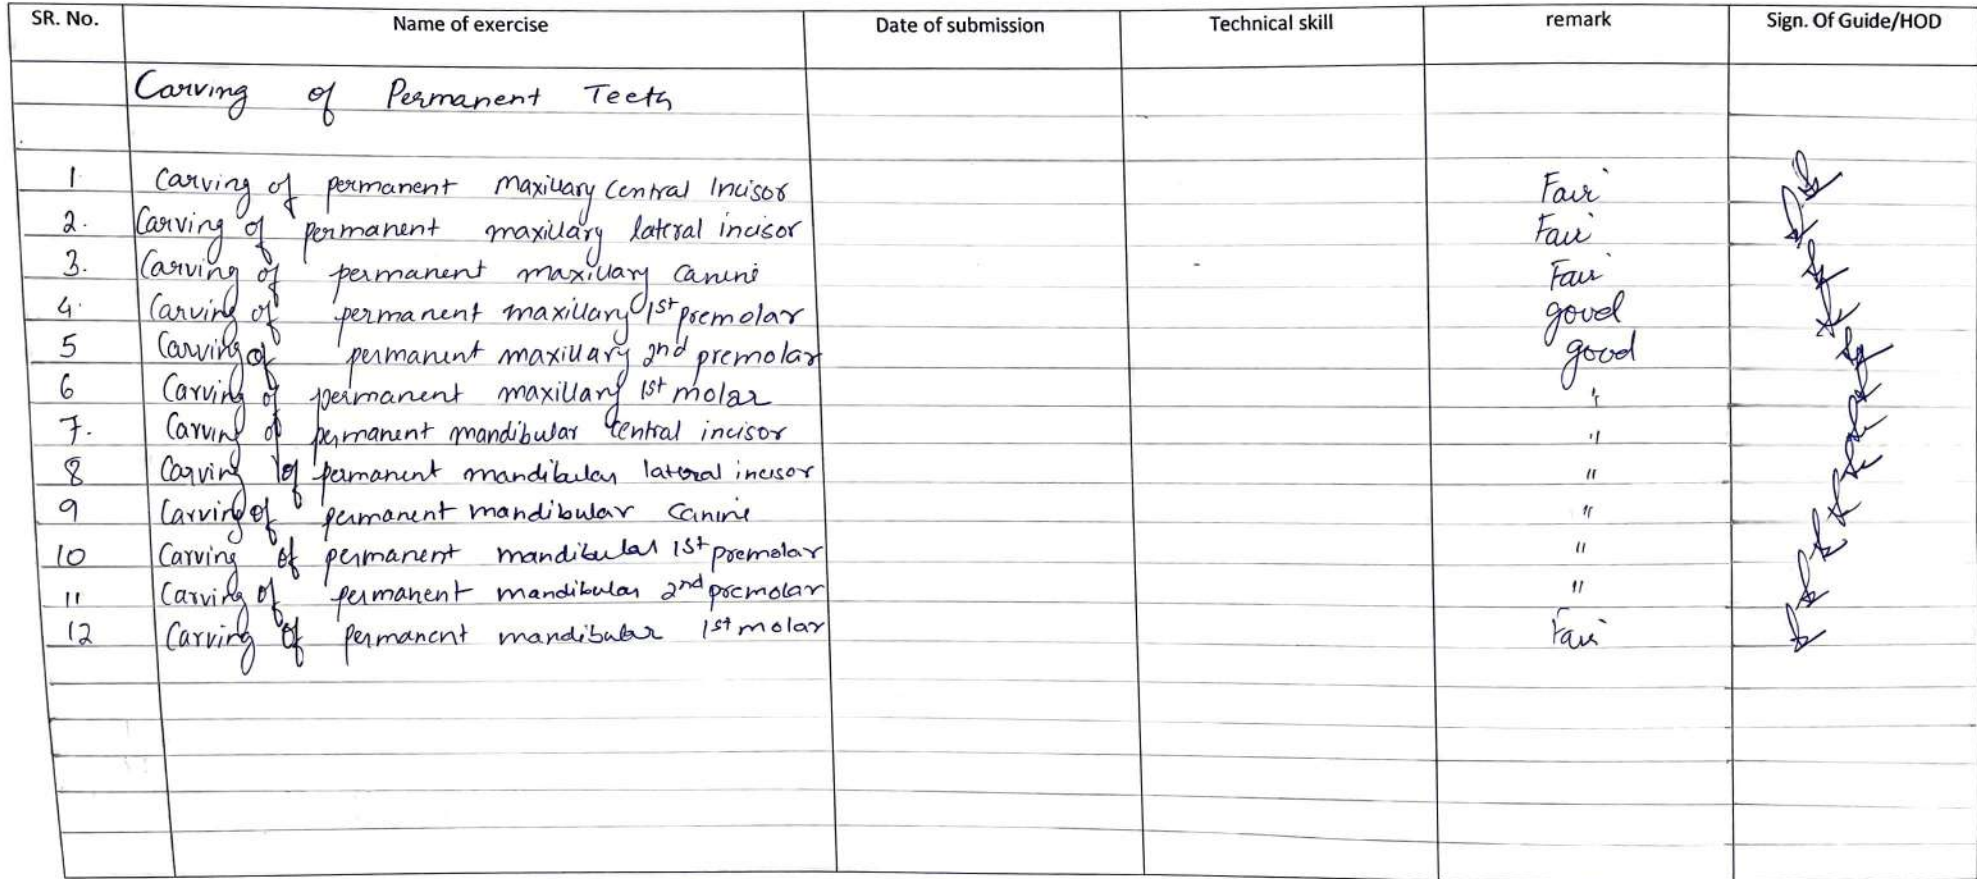 SR. No. Name of exercise Date of submission Technical skill remark Sign. Of Guide/HOD
Carving of Permanent Teeth
1 Carving of permanent maxillary central Incisor Fair
2. Carving of permanent maxillary lateral incisor Fair
3. Carving of permanent maxillary canine Fair
4. Carving of permanent maxillary 1st premolar good
5 Carving of permanent maxillary 2nd premolar good
6 Carving of permanent maxillary 1st molar "
7. Carving of permanent mandibular central incisor "
8 Carving of permanent mandibular lateral incisor "
9 Carving of permanent mandibular Canine "
10 Carving of permanent mandibular 1st premolar "
11 Carving of permanent mandibular 2nd premolar "
12 Carving of permanent mandibular 1st molar Fair